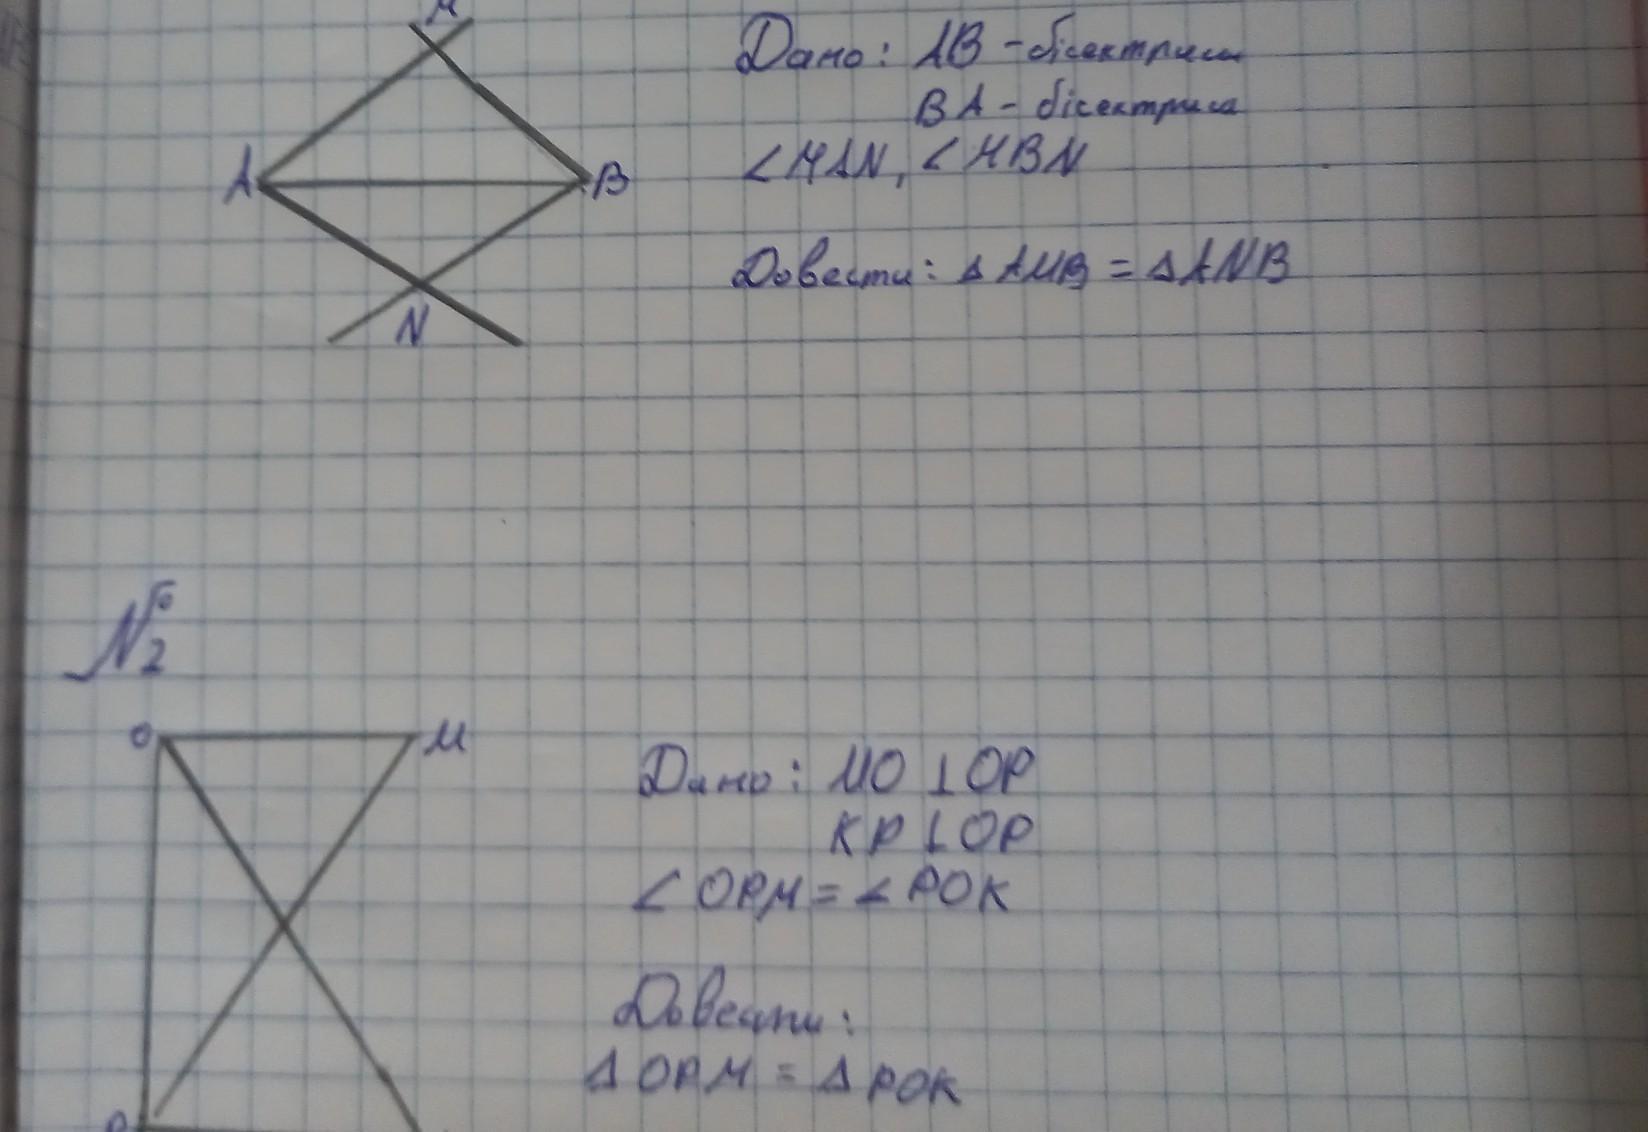 M
Дано: AB - бісектриса
BA - бісектриса
A
B
∠MAN, ∠MBN
Довести: ΔAMB = ΔANB
N
№2
O
M
Дано: MO ⊥ OP
KP ⊥ OP
∠OPM = ∠POK
Довести:
ΔOPM = ΔPOK
P